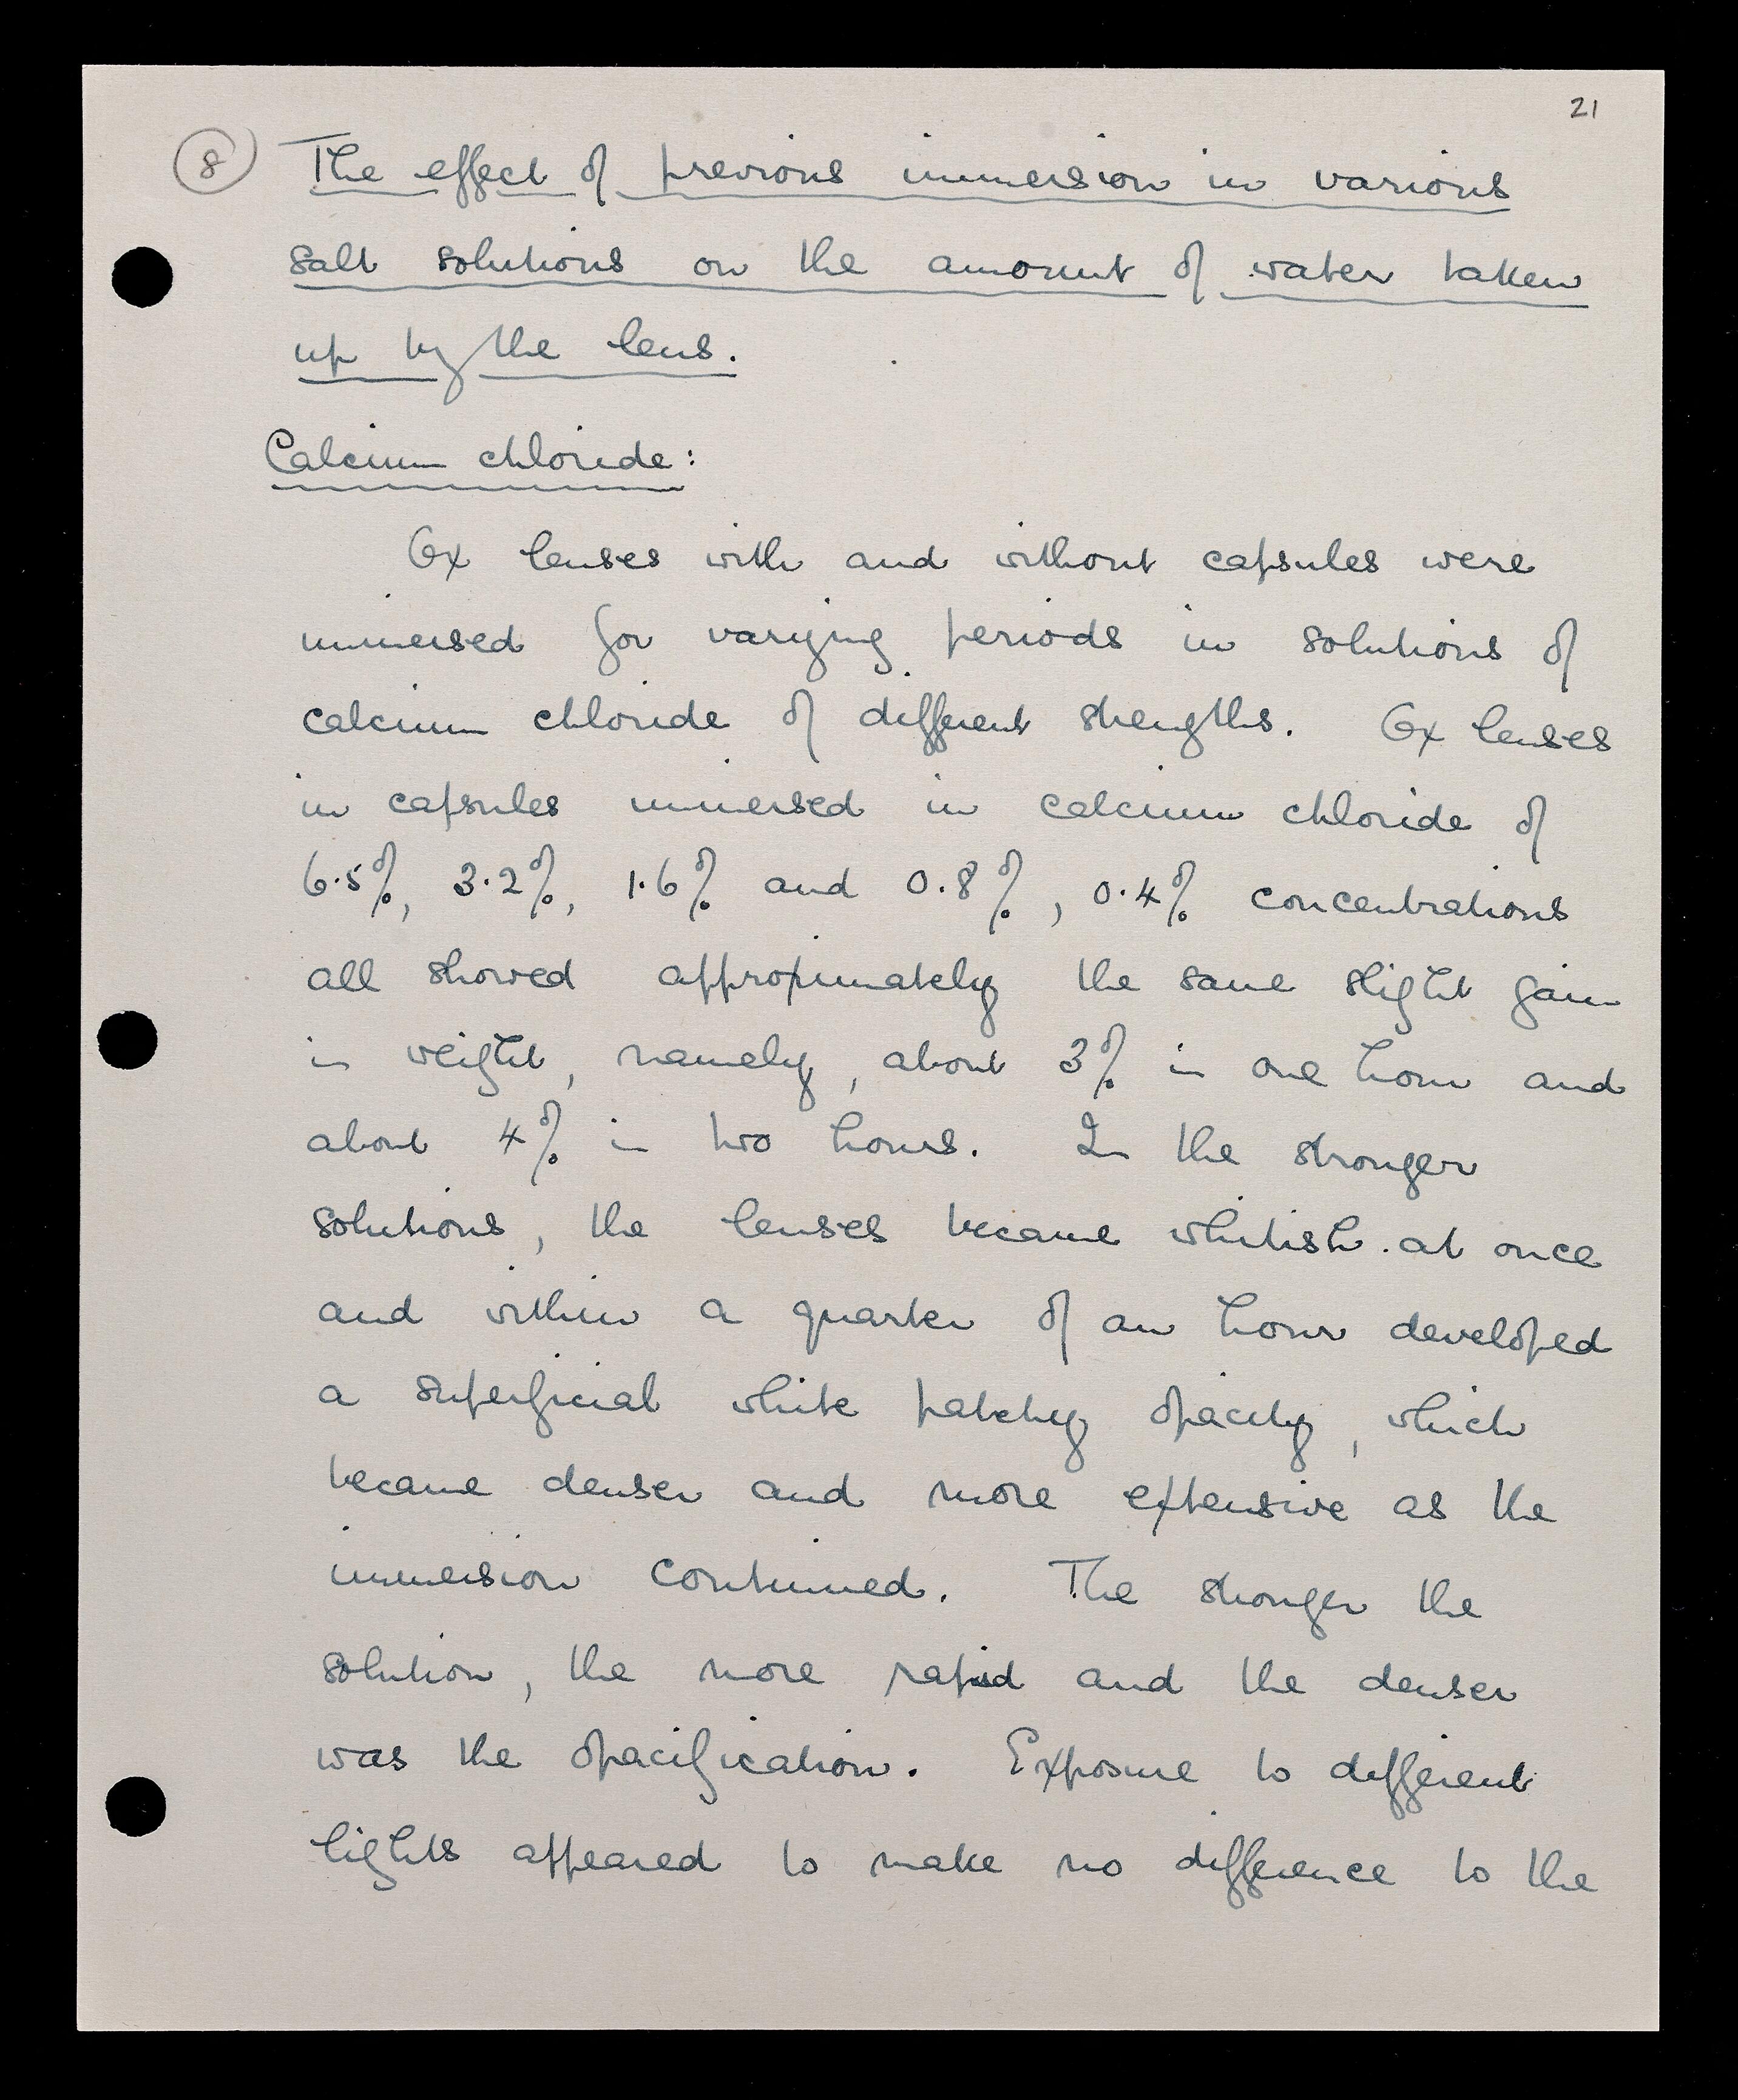 21
8 The effect of previous immersion in various
salt solutions on the amount of water taken
up by the lens.
Calcium chloride:
Ox lenses with and without capsules were
immersed for varying periods in solutions of
calcium chloride of different strengths. Ox lenses
in capsules immersed in calcium chloride of
6.5%, 3.2%, 1.6% and 0.8%, 0.4% concentrations
all showed approximately the same slight gain
in weight, namely, about 3% in one hour and
about 4% in two hours. In the stronger
solutions, the lenses became whitish at once
and within a quarter of an hour developed
a superficial white patchy opacity, which
became denser and more extensive as the
immersion continued. The stronger the
solution, the more rapid and the denser
was the opacification. Exposure to different
lights appeared to make no difference to the